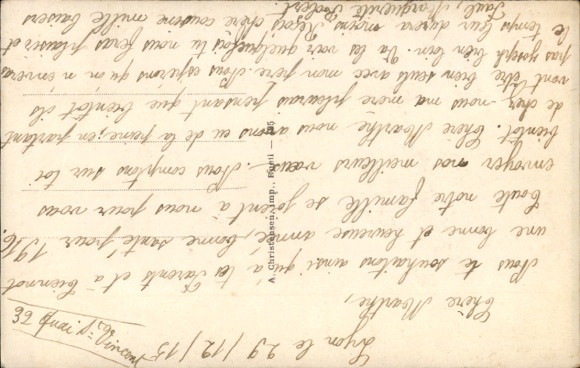 Lyon le 29/12/15
36 quai St Vincent
Chère Marthe,
Nous te souhaitons ainsi qu'à tes Parents et à Bienmot
une bonne et heureuse année, bonne santé pour 1916.
Toute notre famille se joint à nous pour vous
envoyer nos meilleurs vœux. Nous comptons sur toi
bientôt. Chère Marthe, nous avons eu de la peine, en partant
de chez nous ma mère pleurais pensant que bientôt ils
vont être bien seuls avec mon père. Nous espérons qu'on n'enverra
pas Joseph bien loin. Va les voir quelquefois tu nous feras plaisir et
le temps leur durera moins. Reçois chère cousine mille baisers
Paul, Marguerite
A. Christensen, imp., Rueil — 195